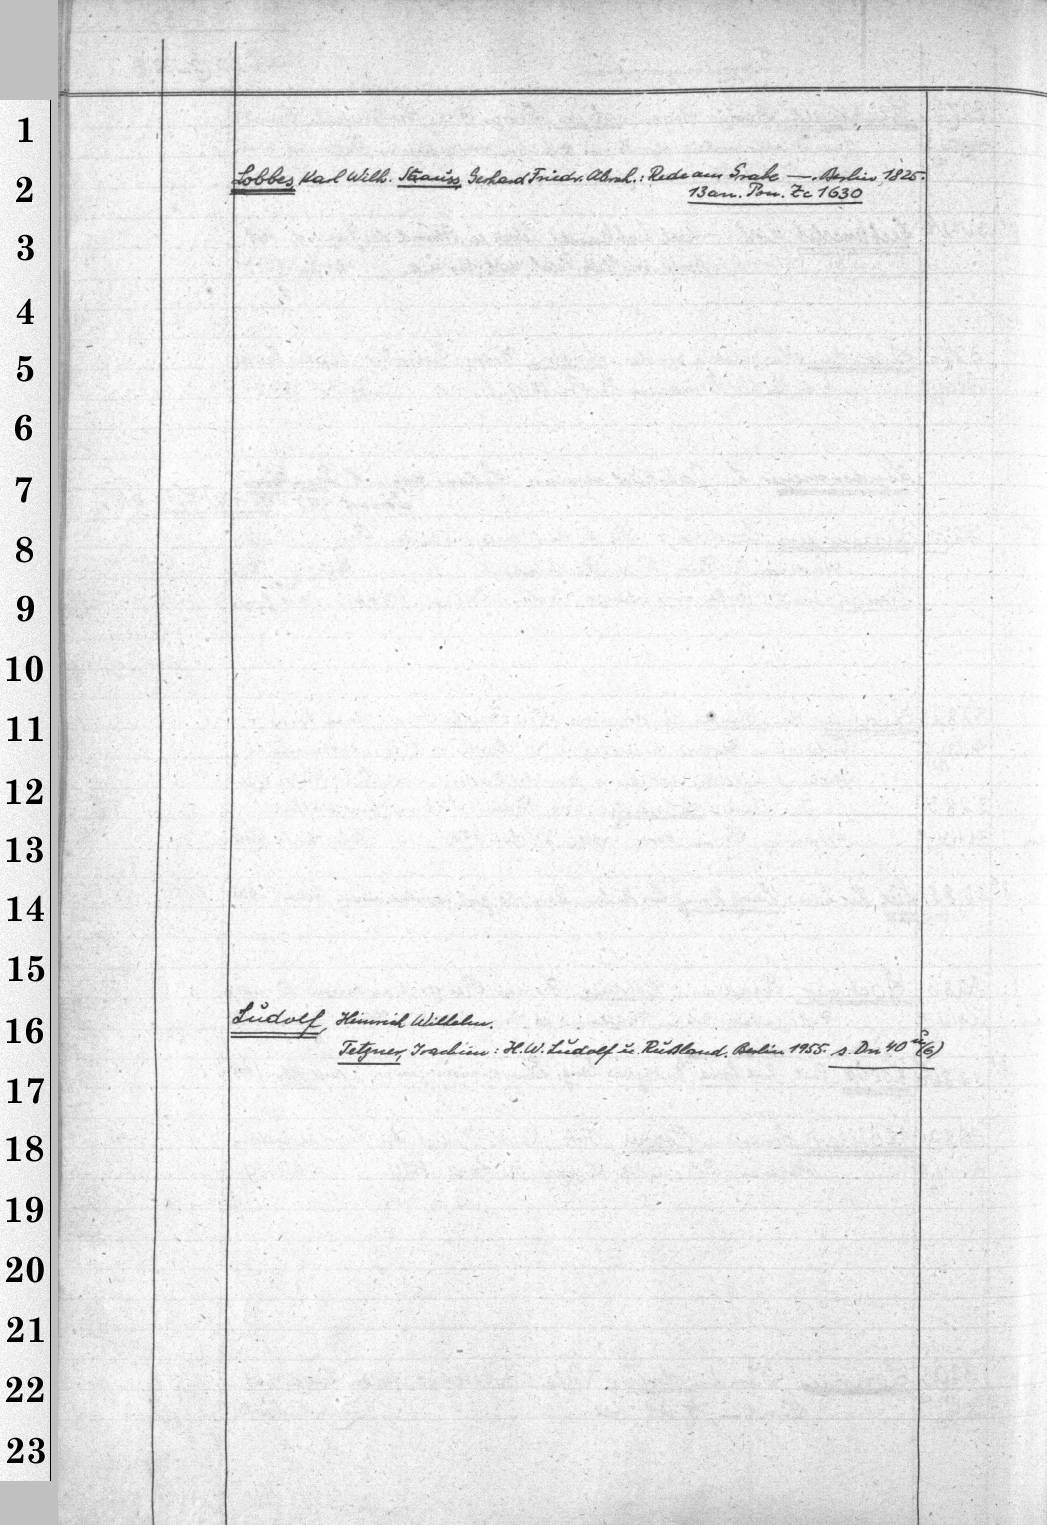 1
2
Lobbes, Karl Wilh. Strauss, Gerhard Friedr. Abrah.: Rede am Grabe —. Berlin, 1825.
13 an: Pon. Zc 1630
3
4
5
6
7
8
9
10
11
12
13
14
15
16
Ludolf, Heinrich Wilhelm.
Tetzner, Joachim: H. W. Ludolf u. Rußland. Berlin 1955. s. Dn 40 (6)
17
18
19
20
21
22
23